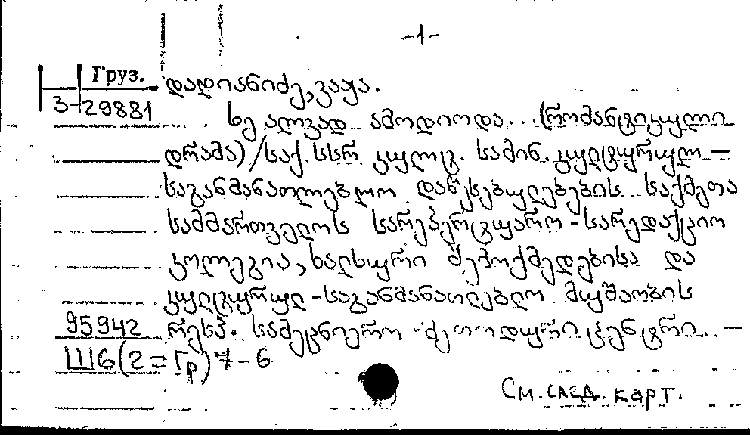 -1-
Груз. დადიანიძე, ვაჟა.
3-29881 ხე ალვად ამოდიოდა... (რომანტიკული
დრამა) / საქ. სსრ კულტ. სამინ. კულტურულ-
საგანმანათლებლო დაწესებულებების საქმეთა
სამმართველოს სარეპერტუარო-სარედაქციო
კოლეგია, ხალხური შემოქმედებისა და
კულტურულ-საგანმანათლებლო მუშაობის
95942 რესპ. სამეცნიერო-მეთოდური ცენტრი. -
Ш16(2=Гр)7-6
См. след. карт.